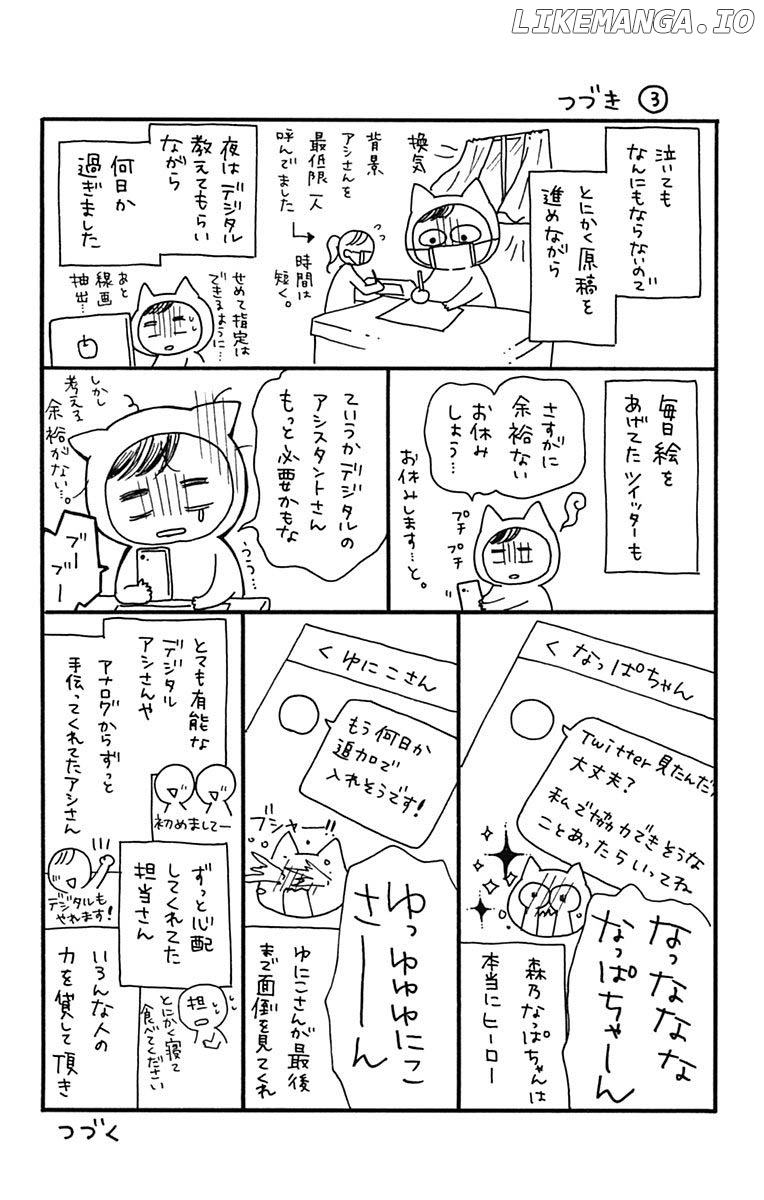 LIKEMANGA.IO
つづき ③
泣いても
なんにもならないので
とにかく原稿を
進めながら
換気
背景
アシさんを
最低限一人
呼んでました
→時間は
短く。
っっ
夜はデジタル
教えてもらい
ながら
何日か
過ぎました
せめて指定は
できるように…
あと
線画
抽出…
毎日絵を
あげてたツイッターも
さすがに
余裕ない
お休み
しよう…
プチ
プチ
お休みします…と。
ていうかデジタルの
アシスタントさん
もっと必要かもな
しかし
考える
余裕がない…。
うう…
ブー
ブー
< なっぱちゃん
Twitter見たんだけ
大丈夫?
私で協力できそうな
ことあったらいってね
なっななな
なっぱちゃーん
森乃なっぱちゃんは
本当にヒーロー
< ゆにこさん
もう何日か
追加で
入れそうです!
ブシャー!!
ゆっゆゆゆにこ
さーーん
ゆにこさんが最後
まで面倒を見てくれ
とても有能な
デジタル
アシさんや
アナログからずっと
手伝ってくれてたアシさん
初めましてー
デジタルも
やれます!
ずっと心配
してくれてた
担当さん
担
とにかく寝て
食べてください
いろんな人の
力を貸して頂き
つづく